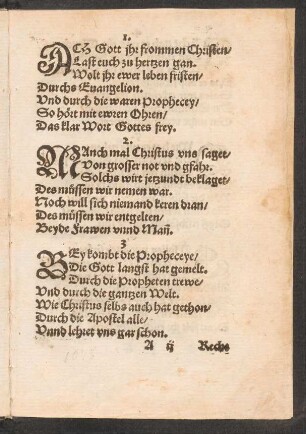 1.
ACH Gott jhr frommen Christen/
Last euch zu hertzen gan.
Wolt jhr ewer leben fristen/
Durchs Euangelion.
Vnd durch die waren Prophecey/
So hört mit ewren Ohren/
Das klar Wort Gottes frey.
2.
MAnch mal Christus vns saget/
Von grosser not vnd gfahr.
Solchs wirt jetzundt beklaget/
Des müssen wir nemen war.
Noch will sich niemand keren dran/
Des müssen wir entgelten/
Beyde Frawen vnnd Mañ.
3
BEy kombt die Propheceye/
Die Gott langst hat gemelt.
Durch die Propheten trewe/
Vnd durch die gantzen Welt.
Wie Christus selbs auch hat gethon/
Durch die Apostel alle/
Vnnd lehret vns gar schon.
A ij Rechs